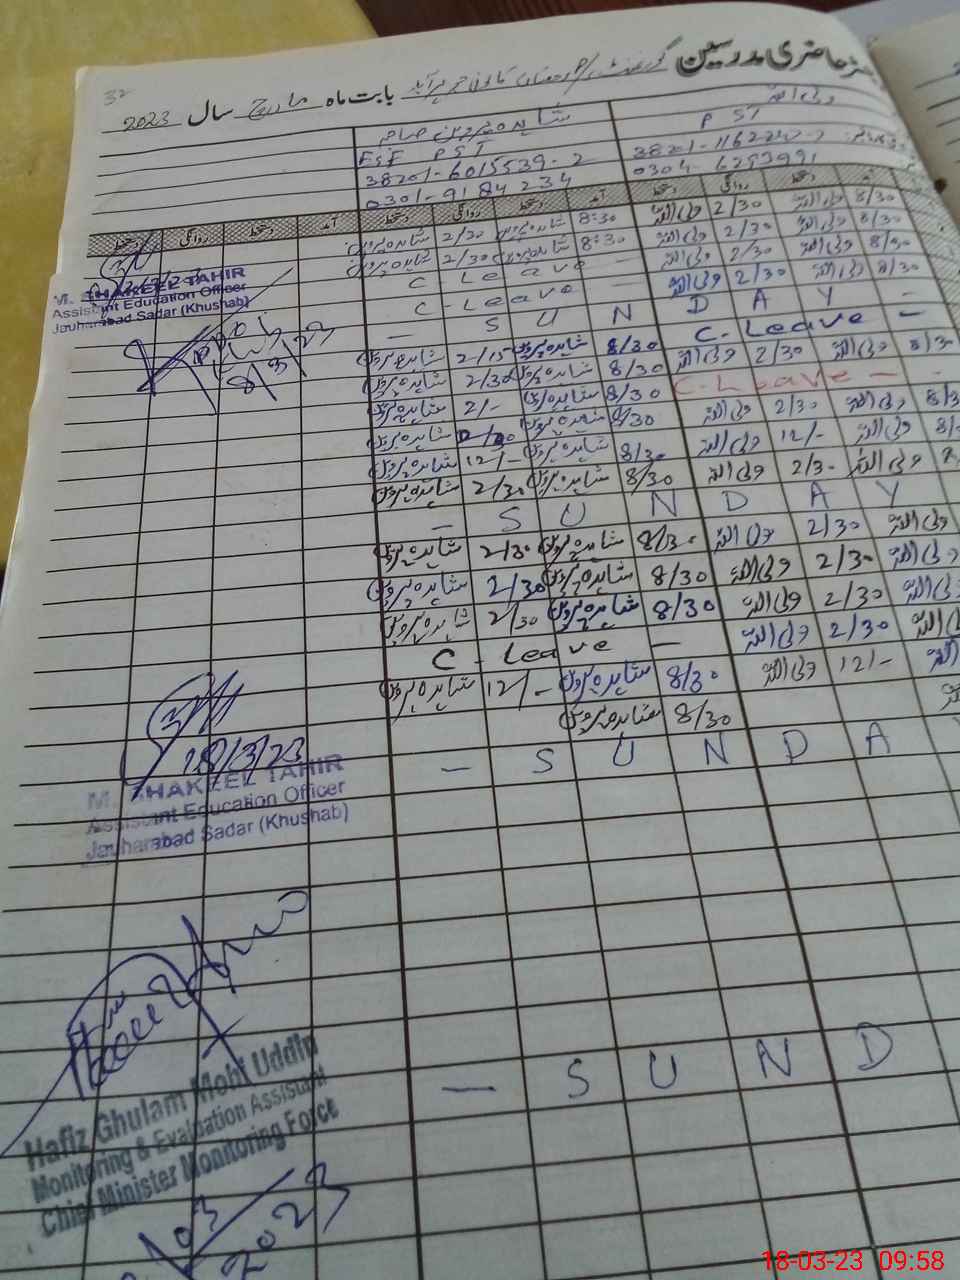 رجسٹر حاضری مدرسین گورنمنٹ بابت ماہ مارچ سال 2023
32
شاہدہ پروین صاحبہ ولی اللہ
ESE PST PST
38201-6015539-2
0301-9184234 0304 6253991
دستخط روانگی دستخط آمد دستخط روانگی دستخط آمد دستخط روانگی دستخط آمد
شاہدہ پروین 2/30 شاہدہ پروین 8:30 ولی اللہ 2/30 ولی اللہ 8/30
شاہدہ پروین 2/30 شاہدہ پروین 8:30 ولی اللہ 2/30 ولی اللہ 8/30
C Leave – ولی اللہ 2/30 ولی اللہ 8/30
C-Leave ولی اللہ 2/30 ولی اللہ 8/30
– S U N D A Y
شاہدہ پروین 2/15 شاہدہ پروین 8/30 C-Leave –
شاہدہ پروین 2/30 شاہدہ پروین 8/30 ولی اللہ 2/30 ولی اللہ 8/30
شاہدہ پروین 2/- شاہدہ پروین 8/30 C-Leave –
شاہدہ پروین شاہدہ پروین 8/30 ولی اللہ 2/30 ولی اللہ 8/30
شاہدہ پروین 12/- شاہدہ پروین 8/30 ولی اللہ 12/- ولی اللہ
شاہدہ پروین 2/30 شاہدہ پروین 8/30 ولی اللہ 2/30 ولی اللہ
– S U N D A Y
شاہدہ پروین 2/30 شاہدہ پروین 8/30 ولی اللہ 2/30 ولی اللہ
شاہدہ پروین 2/30 شاہدہ پروین 8/30 ولی اللہ 2/30 ولی اللہ
شاہدہ پروین 2/30 شاہدہ پروین 8/30 ولی اللہ 2/30 ولی اللہ
C-Leave – ولی اللہ 2/30 ولی اللہ
شاہدہ پروین 12/- شاہدہ پروین 8/30 ولی اللہ 12/- ولی اللہ
شاہدہ پروین 8/30
– S U N D A Y
– S U N D
M. SHAKEEL TAHIR
Assistant Education Officer
Jauharabad Sadar (Khushab)
8/3/23
18/3/23
M. SHAKEEL TAHIR
Assistant Education Officer
Jauharabad Sadar (Khushab)
Hafiz Ghulam Mohi Uddin
Monitoring & Evaluation Assistant
Chief Minister Monitoring Force
03
2023
18-03-23 09:58